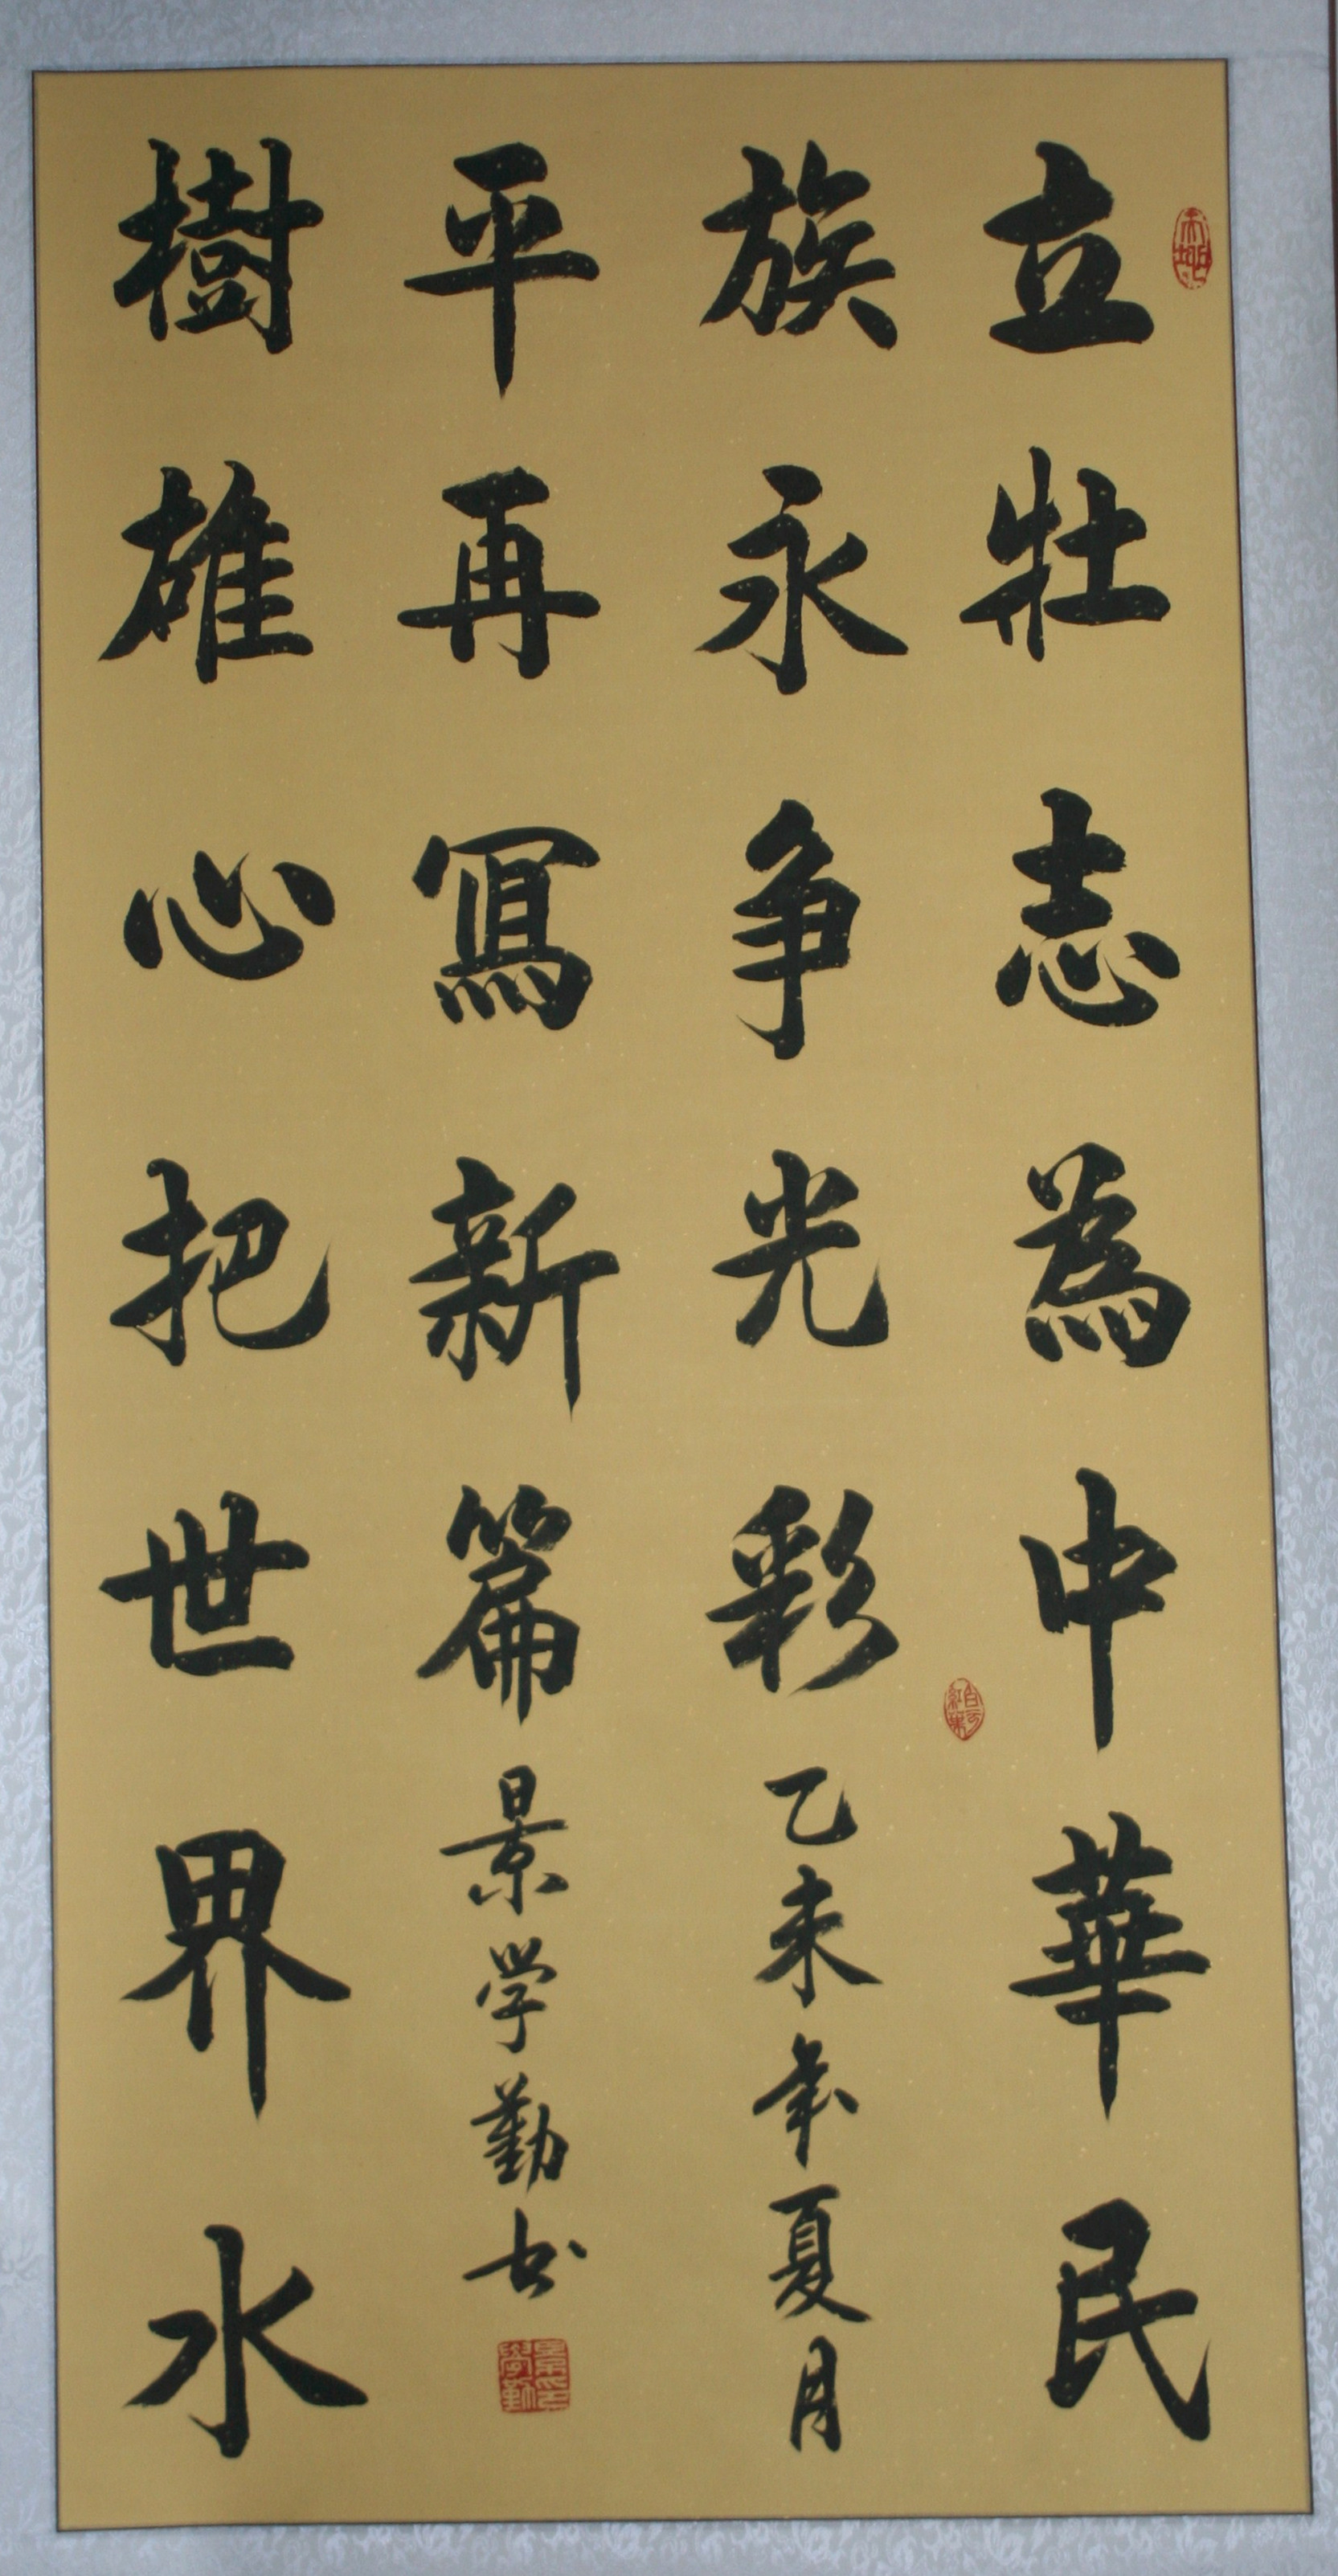 立壯志為中華民
族永争光彩
乙未年夏月
樹雄心把世界水
平再寫新篇
景学勤书
景印學勤